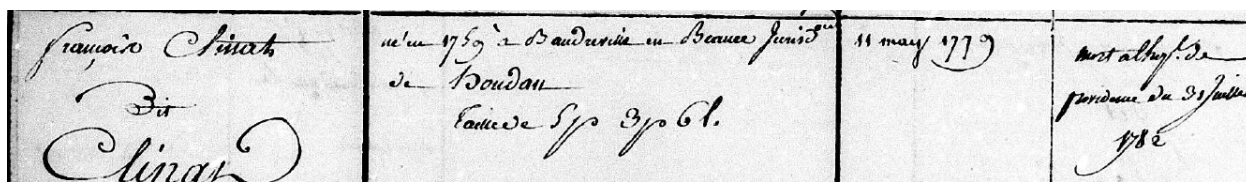 françois Clinat
Dit
Clinat
né en 1759 a Bauduville en Beauce Jurisd.on
de Houdan
taille de 5p 3p 6l.
11 may 1779
mort a lhop.l de
providence du 31 Juillet
1782